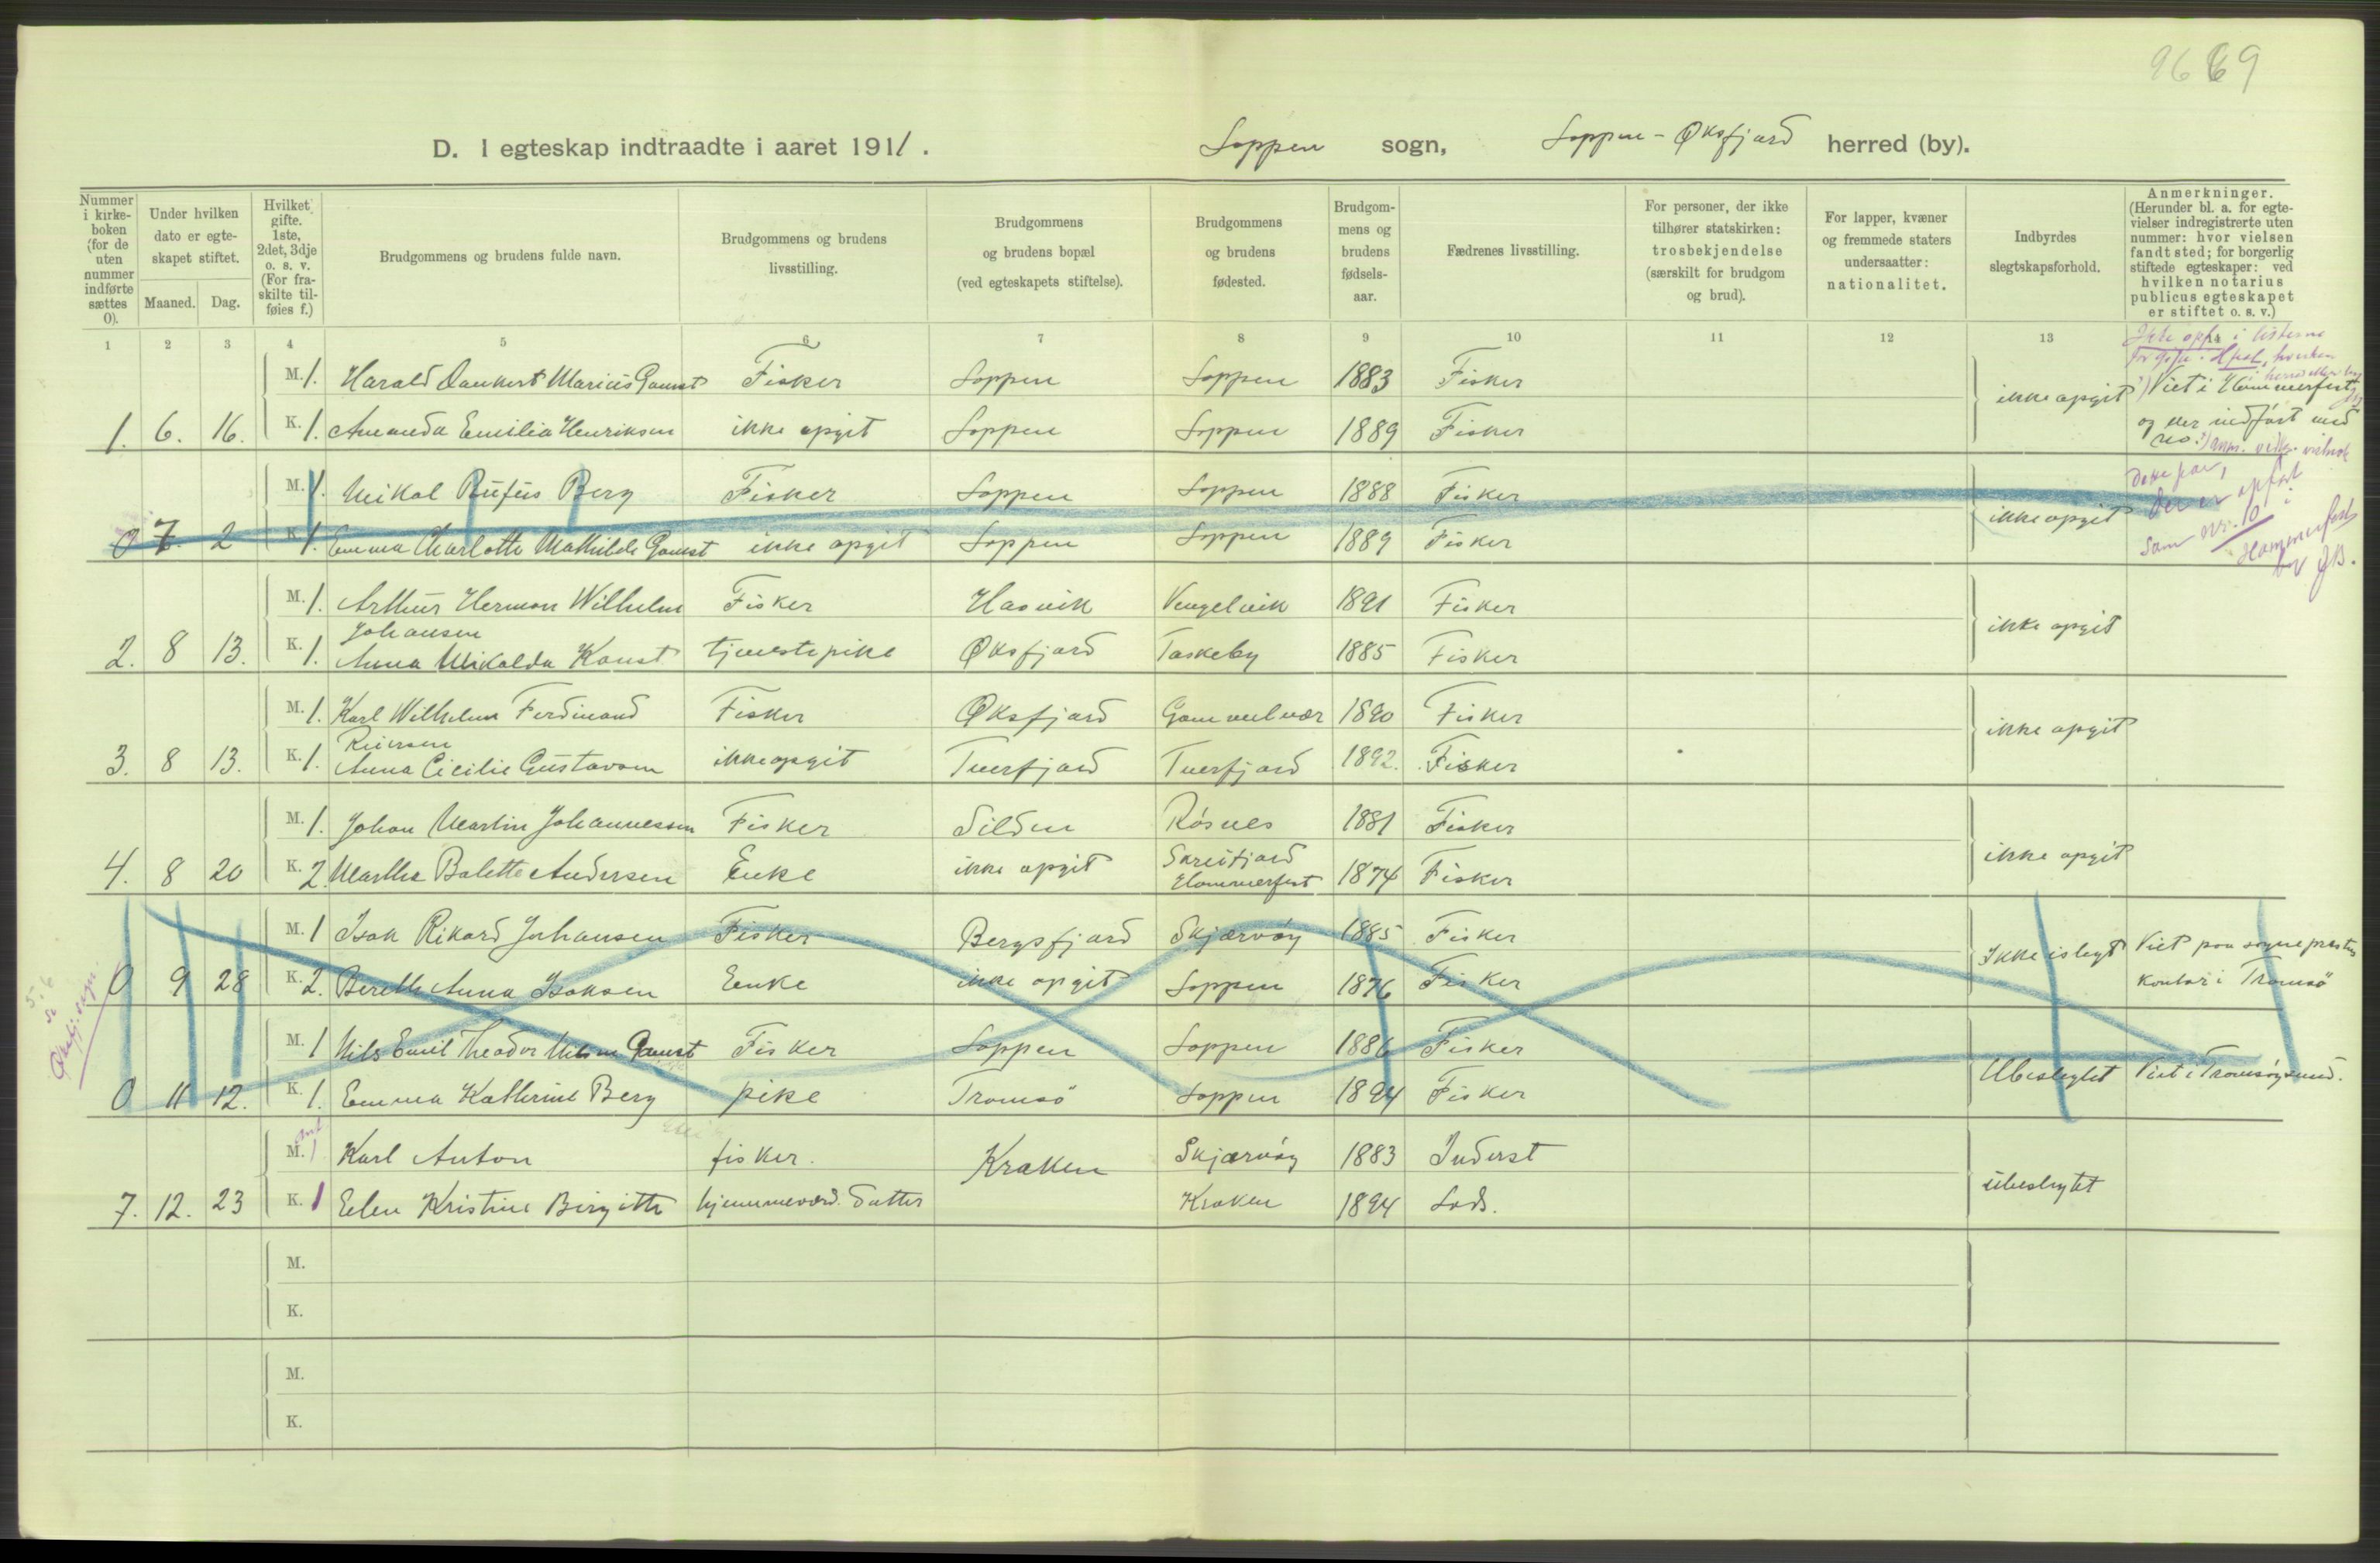 9669
D. I egteskap indtraadte i aaret 1911. Loppen sogn, Loppen - Øksfjord herred (by).
Nummer i kirke- boken (for de uten nummer indførte sættes 0).
Under hvilken dato er egte- skapet stiftet.
Maaned. Dag.
Hvilket gifte. 1ste, 2det, 3dje o. s. v. (For fra- skilte til- føies f.)
Brudgommens og brudens fulde navn.
Brudgommens og brudens livsstilling.
Brudgommens og brudens bopæl (ved egteskapets stiftelse).
Brudgommens og brudens fødested.
Brudgom- mens og brudens fødsels- aar.
Fædrenes livsstilling.
For personer, der ikke tilhører statskirken: trosbekjendelse (særskilt for brudgom og brud).
For lapper, kvæner og fremmede staters undersaatter: nationalitet.
Indbyrdes slegtskapsforhold.
Anmerkninger. (Herunder bl. a. for egte- vielser indregistrerte uten nummer: hvor vielsen fandt sted; for borgerlig stiftede egteskaper: ved hvilken notarius publicus egteskapet er stiftet o. s. v.)
1 2 3 4 5 6 7 8 9 10 11 12 13
M. 1. Harald Dankert Marius Gamst Fisker Loppen Loppen 1883 Fisker ikke opgit Viet i Hammerfest
1. 6. 16. K. 1. Amanda Emilia Henriksen ikke opgit Loppen Loppen 1889 Fisker og der indført med no.
M. 1. Mikal Rufus Berg Fisker Loppen Loppen 1888 Fisker ikke opgit Dette par, der er opført
0 7. 2 K. 1. Emma Charlotte Mathilde Gamst ikke opgit Loppen Loppen 1889 Fisker som nr. 10 i Hammerfest
M. 1. Arthur Herman Wilhelm Fisker Hasvik Vengelvik 1891 Fisker ikke opgit
Johansen
2. 8 13. K. 1. Anna Mikalda Kaust tjenestepike Øksfjord Taskeby 1885 Fisker
M. 1. Karl Wilhelm Ferdinand Fisker Øksfjord Gammelvær 1890 Fisker ikke opgit
Reiersen
3. 8 13. K. 1. Anna Cicilie Gustavsen ikke opgit Tverfjord Tverfjord 1892. Fisker
M. 1. Johan Martin Johannessen Fisker Silden Rösnes 1881 Fisker ikke opgit
4. 8 20 K. 2. Marthe Balette Andersen Enke ikke opgit Hammerfest 1874 Fisker
M. 1 Isak Rikard Johansen Fisker Bergsfjord Skjærvöy 1885 Fisker Ikke i slegt Viet paa sogneprestens
0 9 28 K. 2. Berethe Anna Isaksen Enke ikke opgit Loppen 1876 Fisker kontor i Tromsö
M. 1 Nils Emil Theodor Nilsen Gamst Fisker Loppen Loppen 1886 Fisker Ubeslegtet Viet i Tromsöysund.
0 11 12. K. 1. Emma Kathrine Berg pike Tromsö Loppen 1894 Fisker
M. 1 Karl Anton fisker. Kraken Skjærvöy 1883 Inderst ubeslegtet
7. 12. 23 K. 1 Elen Kristine Birgitte hjemmeværd. datter Kraken 1894 Lods.
M.
K.
M.
K.